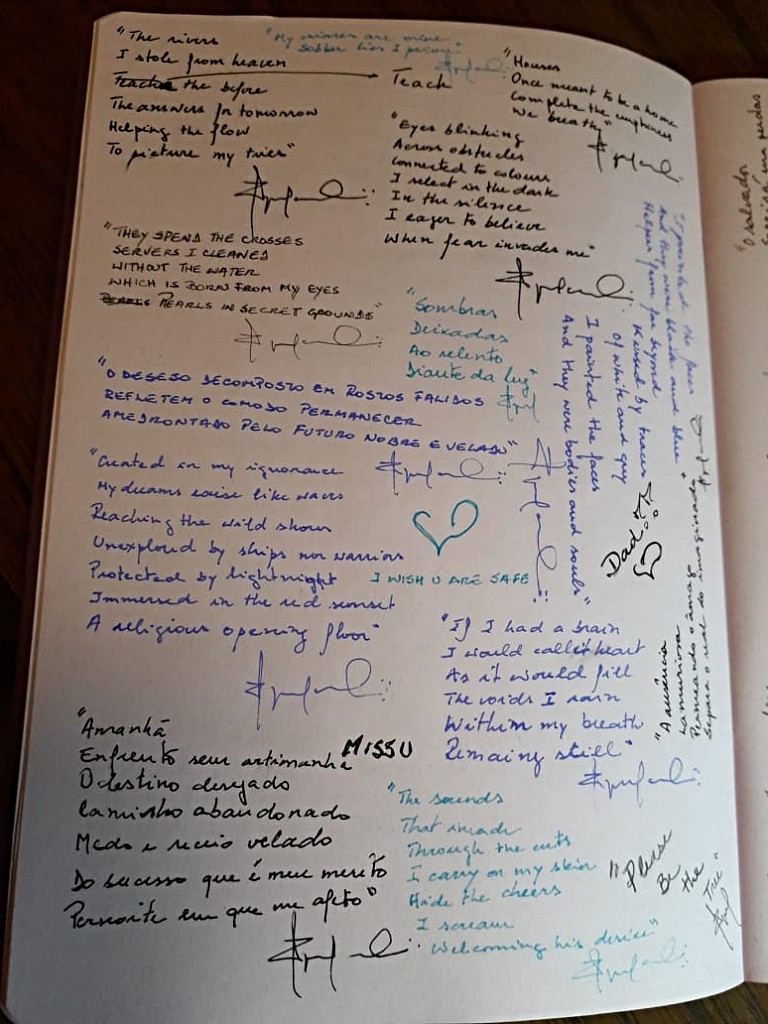 "The rivers
I stole from heaven
Teach the before
The answers for tomorrow
Helping the flow
To picture my tries"
"My are mine
"Houses
Once meant to be a home
Complete the emptiness
We breath"
Teach
"Eyes blinking
Across obstacles
Connected to colours
I select in the dark
In the silence
I eager to believe
When fear invades me"
"THEY SPEND THE CROSSES
SERVERS I CLEANED
WITHOUT THE WATER
WHICH IS BORN FROM MY EYES
PEARLS IN SECRET GROUNDS"
"Sombras
Deixadas
Ao relento
Diante da luz"
"O DESEJO DECOMPOSTO EM ROSTOS FALIDOS
REFLETEM O COMODO PERMANECER
AMEDRONTADO PELO FUTURO NOBRE E VELADO"
"I painted the faces
And they were black and blue
Helper from far beyond
Kissed by traces
Of white and grey
I painted the faces
And they were bodies and souls"
"Created in my ignorance
My dreams raise like waves
Reaching the wild shows
Unexplored by ships nor warriors
Protected by lightnight
Immersed in the red sunset
A religious opening floor"
I WISH U ARE SAFE
Dad
"If I had a brain
I would call it heart
As it would fill
The voids I rain
Within my breath
Remaing still"
"A ausência
Lamuriosa
Permeando o âmago
Separa o real do imaginado"
MISS U
"Amanhã
Enfrento sem artimanha
O destino desejado
Caminho abandonado
Medo e receio velado
Do sucesso que é meu mérito
Permite em que me afeto"
"The sounds
That invade
Through the cuts
I carry on my skin
Hide the cheers
I scream
Welcoming his desire"
"Please
Be
the
Tree"
"O salvador